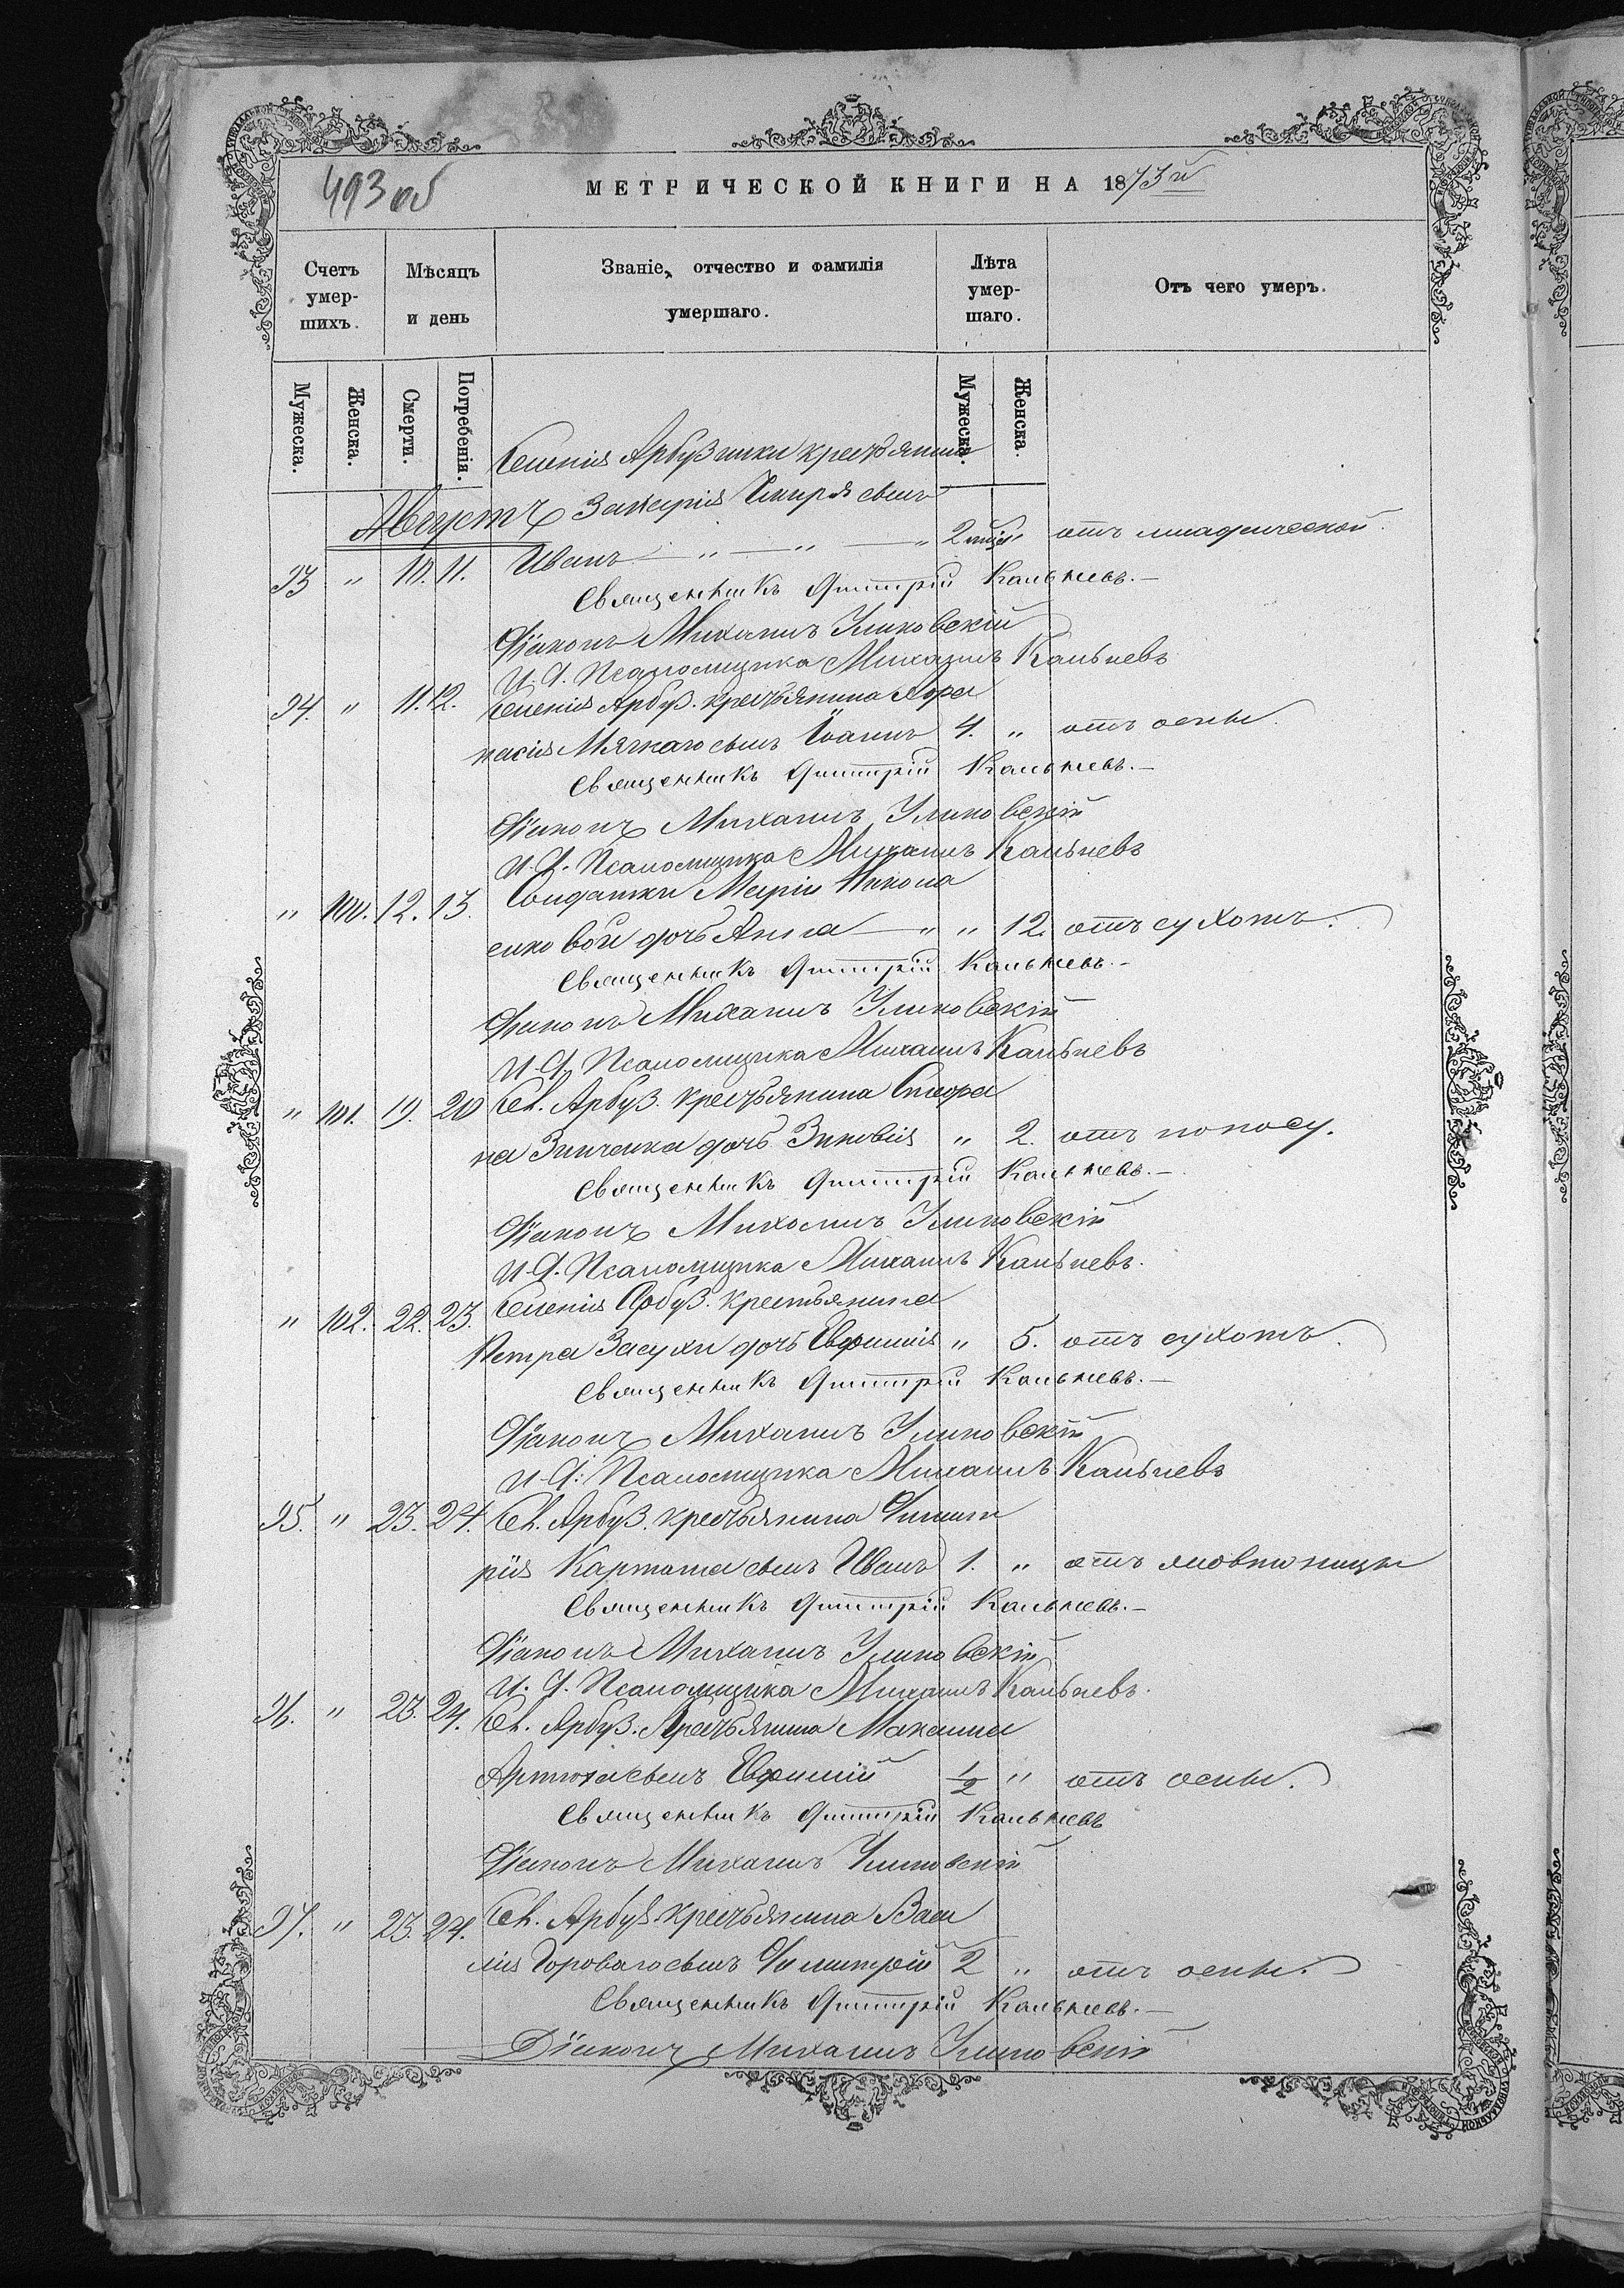 493 об
МЕТРИЧЕСКОЙ КНИГИ НА 1873й
Счетъ умершихъ.
Мѣсяцъ и день
Званіе, отчество и фамилія умершаго.
Лѣта умершаго.
Отъ чего умеръ.
Мужеска.
Женска.
Смерти.
Погребенія.
Мужеска.
Женска.
Селенія Арбузинки крестьянина
Августъ Захарія сынъ
93 " 10. 11. Иванъ — " — " — " 2 " отъ младенческой.
Священникъ Димитрій Кальневъ.—
Діаконъ Михаилъ Улиновскій
И. Д. Псаломщика Михаилъ Кальневъ
94. " 11. 12. Селенія Арбуз. крестьянина Афа
насія Мягкаго сынъ Іоаннъ 4. " отъ оспы.
Священникъ Димитрій Кальневъ.—
Діаконъ Михаилъ Улиновскій
И. Д. Псаломщика Михаилъ Кальневъ
" 100. 12. 13. Солдатки Маріи Никола
енковой дочь Анна — " " 12. отъ сухотъ.
Священникъ Димитрій Кальневъ.—
Діаконъ Михаилъ Улиновскій
И. Д. Псаломщика Михаилъ Кальневъ
" 101. 19. 20 Сел. Арбуз. крестьянина Стефа
на Зинченка дочь Зиновія " 2. отъ поносу.
Священникъ Димитрій Кальневъ.—
Діаконъ Михаилъ Улиновскій
И. Д. Псаломщика Михаилъ Кальневъ.
" 102. 22. 23. Селенія Арбуз. крестьянина
Петра Засухи дочь Евфимія " 5. отъ сухотъ.
Священникъ Димитрій Кальневъ.—
Діаконъ Михаилъ Улиновскій
И. Д. Псаломщика Михаилъ Кальневъ
95. " 23. 24. Сел. Арбуз. крестьянина Димит
рія сынъ Иванъ 1. " отъ
Священникъ Димитрій Кальневъ.—
Діаконъ Михаилъ Улиновскій
И. Д. Псаломщика Михаилъ Кальневъ.
96. " 23. 24. Сел. Арбуз. Крестьянина
сынъ Евфимій 1/2 " отъ оспы.
Священникъ Димитрій Кальневъ
Діаконъ Михаилъ Улиновскій
97. " 23. 24. Сел. Арбуз. крестьянина Васи
лія сынъ Димитрій 2 " отъ оспы.
Священникъ Димитрій Кальневъ.—
Діаконъ Михаилъ Улиновскій